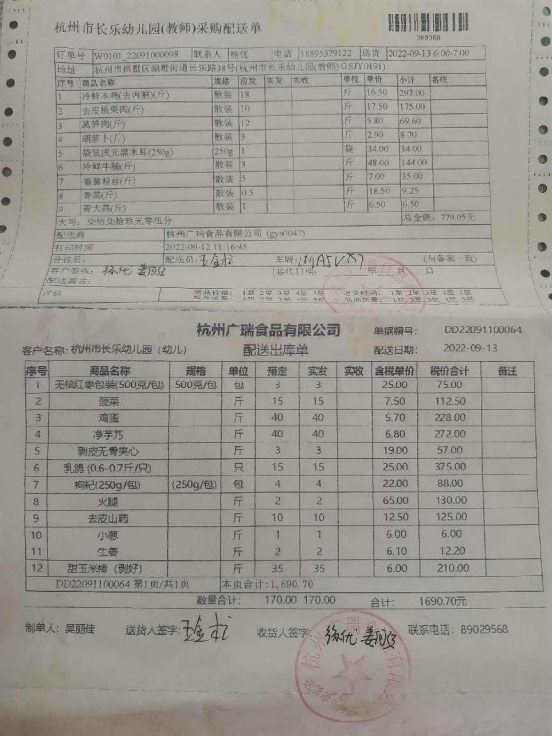 杭州市长乐幼儿园(教师)采购配送单
309388
订单号 W0101_22091000098 联系人 徐优 电话 18895379122 送货 2022-09-13 6:00-7:00
地址 杭州市拱墅区湖墅街道长乐路38号(杭州市长乐幼儿园(教师) GSJY0191)
序号 商品名称 规格 应发 实发 实收 单位 单价 小计 备注
1 冷鲜本鸡(去内脏)(斤) 散装 18 斤 16.50 297.00
2 去皮板栗肉(斤) 散装 10 斤 17.50 175.00
3 莴笋肉(斤) 散装 12 斤 5.80 69.60
4 胡萝卜(斤) 散装 3 斤 2.90 8.70
5 袋装庆元黑木耳(250g) 250g 1 袋 34.00 34.00
6 冷鲜牛腩(斤) 散装 3 斤 48.00 144.00
7 番薯粉丝(斤) 散装 5 斤 7.00 35.00
8 香菜(斤) 散装 0.5 斤 18.50 9.25
9 青大蒜(斤) 散装 1 斤 6.50 6.50
大写: 柒佰柒拾玖元零伍分 总金额: 779.05元
配送商 杭州广瑞食品有限公司 (gys0047)
打印时间 2022-09-12 11:16:45
分拣员: 配送员: 车牌: (与备案一致)
客户签收: 签收日期: 年 月 日
配送留言:
评价
杭州广瑞食品有限公司 单据编号: DD22091100064
客户名称: 杭州市长乐幼儿园（幼儿） 配送出库单 配送日期: 2022-09-13
序号 商品名称 规格 单位 预定 实发 实收 含税单价 税价合计 备注
1 无核红枣包装(500克/包) 500克/包 包 3 3 25.00 75.00
2 菠菜 斤 15 15 7.50 112.50
3 鸡蛋 斤 40 40 5.70 228.00
4 净芋艿 斤 40 40 6.80 272.00
5 剥皮无骨夹心 斤 3 3 19.00 57.00
6 乳鸽 (0.6-0.7斤/只) 只 15 15 25.00 375.00
7 枸杞(250g/包) (250g/包) 包 4 4 22.00 88.00
8 火腿 斤 2 2 65.00 130.00
9 去皮山药 斤 10 10 12.50 125.00
10 小葱 斤 1 1 6.00 6.00
11 生姜 斤 2 2 6.10 12.20
12 甜玉米棒（剥好） 斤 35 35 6.00 210.00
DD22091100064 第1页/共1页 本页合计:1,690.70
数量合计: 170.00 170.00 合计: 1690.70元
制单人: 吴丽佳 送货人签字: 收货人签字: 联系电话: 89029568